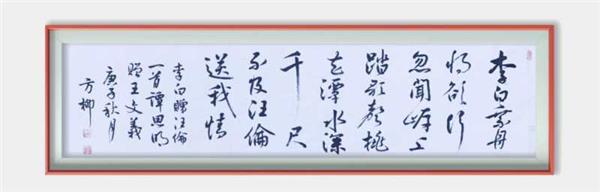 李白乘舟
将欲行
忽聞岸上
踏歌聲桃
花潭水深
千尺
不及汪倫
送我情
李白贈汪倫
一首譚思明
贈王文義
庚子秋月
方柳